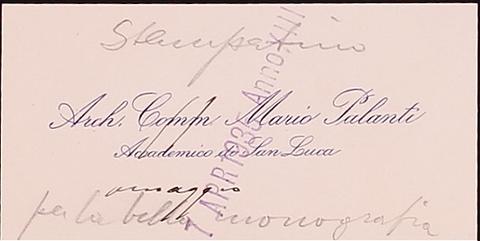 Stamperino
Arch. Comm Mario Palanti
Accademico di San Luca
omaggio
per la bella monografia
7 APR 1935 Anno XIII